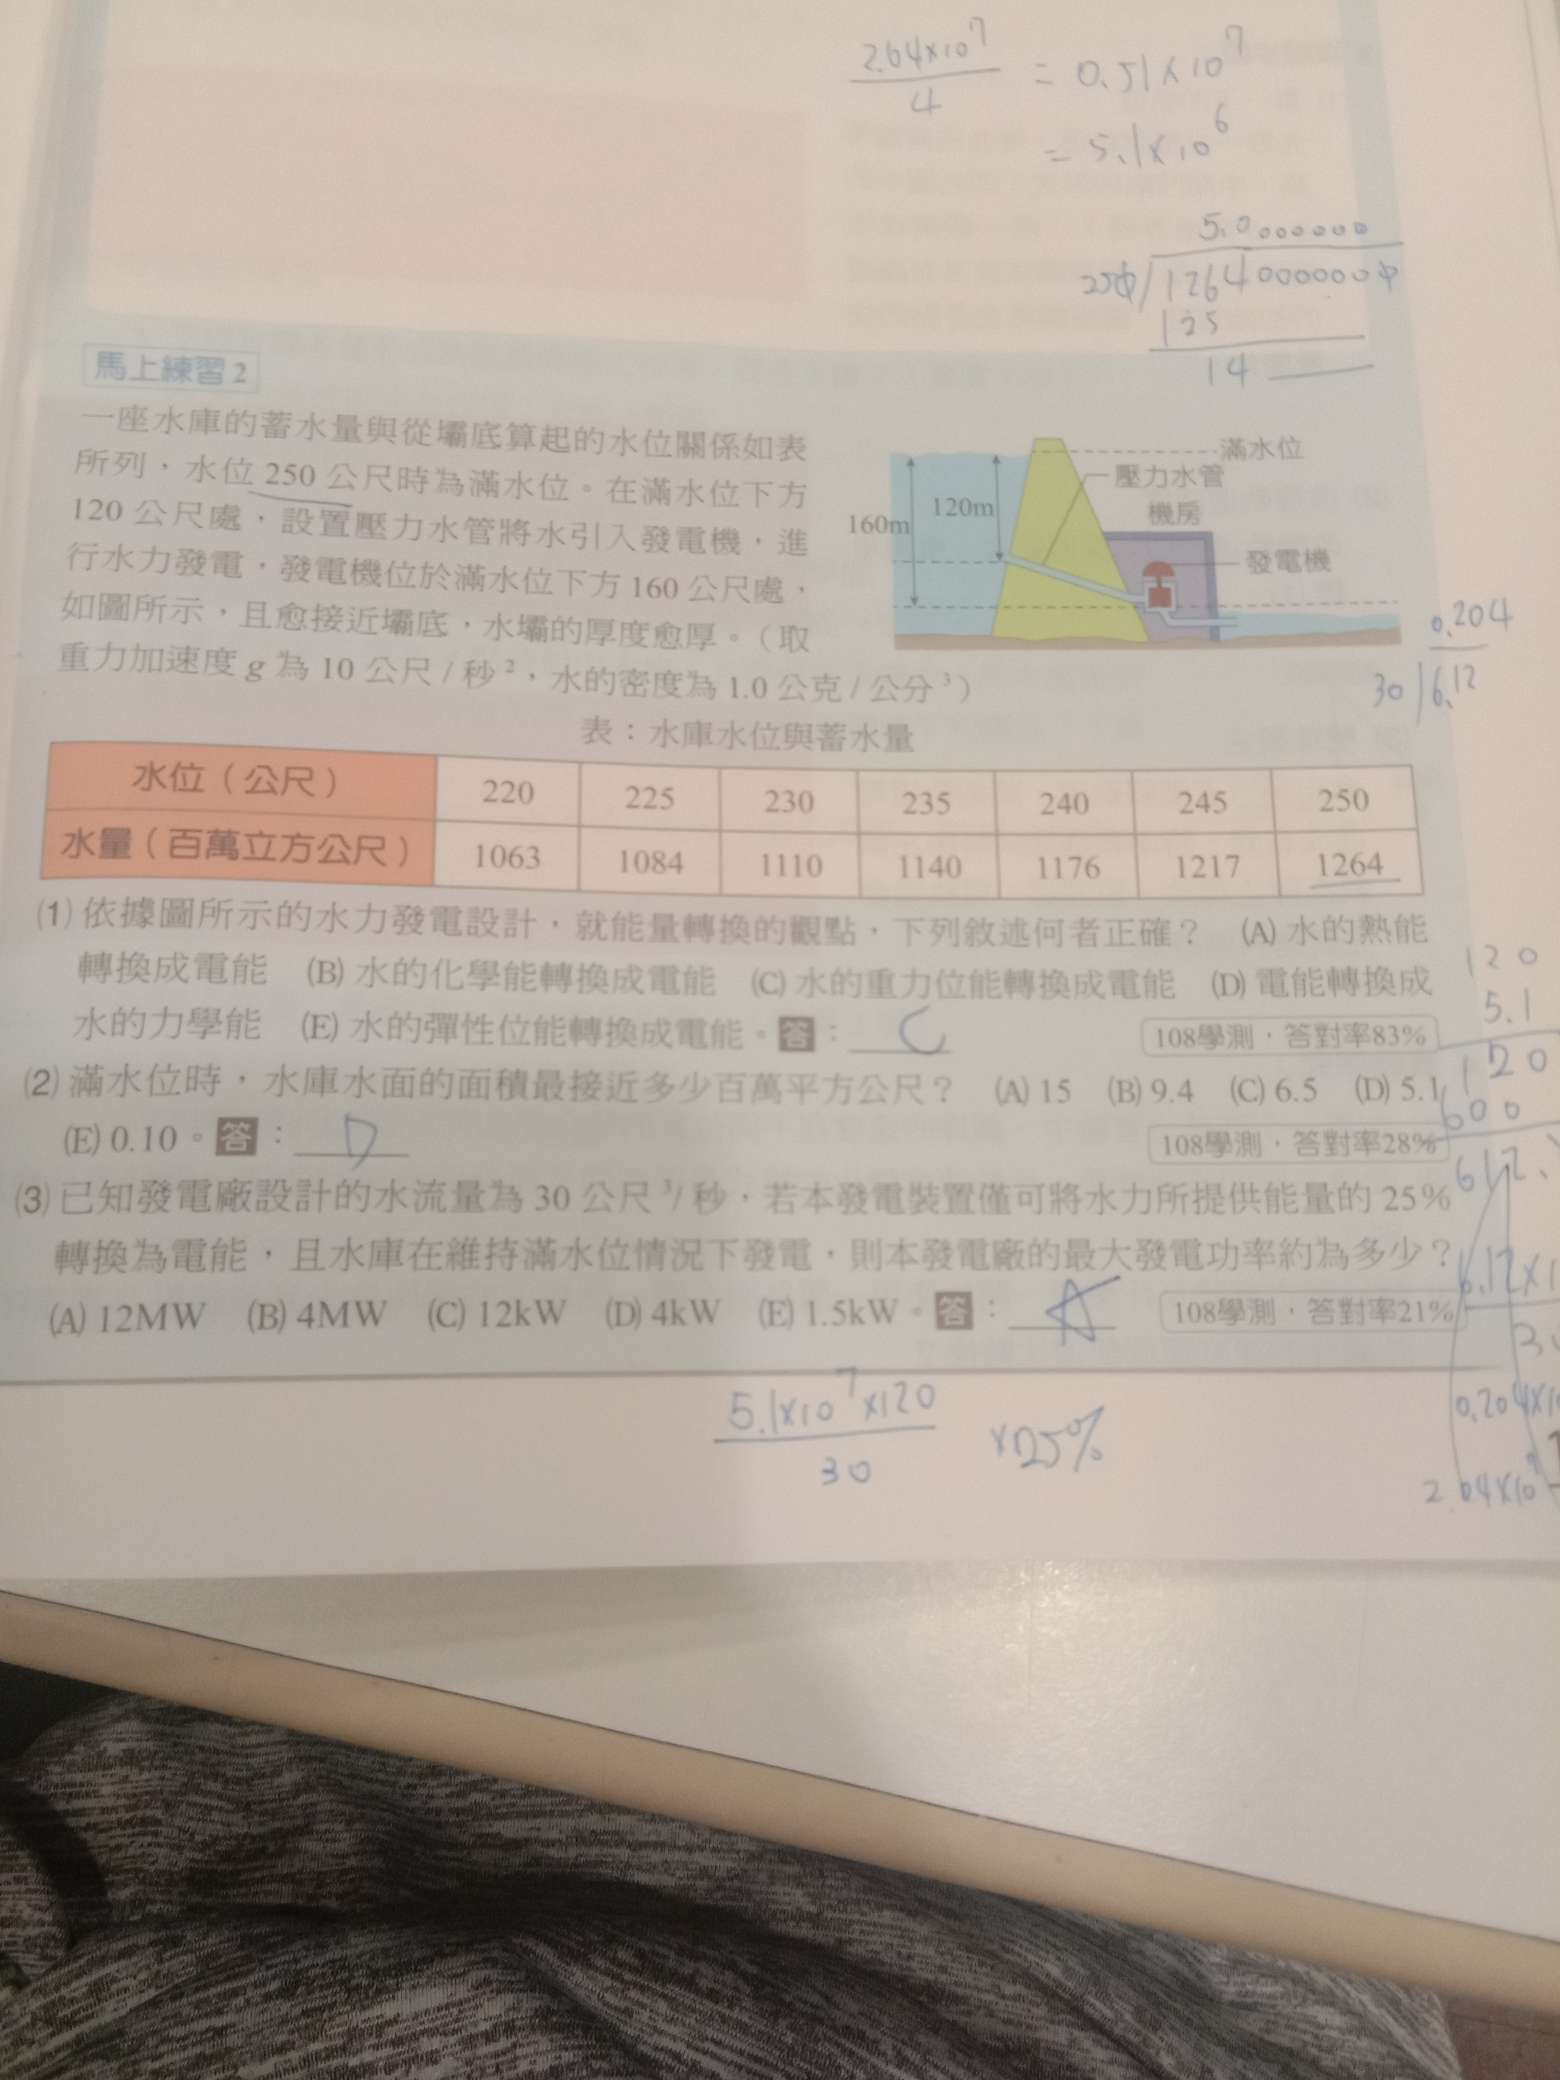 2.64×10⁷
4
= 0.51×10⁷
= 5.1×10⁶
5.0000000
1264000000
125
14
馬上練習2
一座水庫的蓄水量與從壩底算起的水位關係如表
所列，水位250公尺時為滿水位。在滿水位下方
120公尺處，設置壓力水管將水引入發電機，進
行水力發電，發電機位於滿水位下方160公尺處，
如圖所示，且愈接近壩底，水壩的厚度愈厚。（取
重力加速度g為10公尺/秒²，水的密度為1.0公克/公分³）
滿水位
壓力水管
機房
160m
120m
發電機
0.204
30 6.12
表：水庫水位與蓄水量
水位（公尺） 220 225 230 235 240 245 250
水量（百萬立方公尺） 1063 1084 1110 1140 1176 1217 1264
(1) 依據圖所示的水力發電設計，就能量轉換的觀點，下列敘述何者正確？ (A) 水的熱能
轉換成電能 (B) 水的化學能轉換成電能 (C) 水的重力位能轉換成電能 (D) 電能轉換成
水的力學能 (E) 水的彈性位能轉換成電能。答： C 108學測，答對率83%
(2) 滿水位時，水庫水面的面積最接近多少百萬平方公尺？ (A) 15 (B) 9.4 (C) 6.5 (D) 5.1
(E) 0.10。答： D 108學測，答對率28%
(3) 已知發電廠設計的水流量為30公尺³/秒，若本發電裝置僅可將水力所提供能量的25%
轉換為電能，且水庫在維持滿水位情況下發電，則本發電廠的最大發電功率約為多少？
(A) 12MW (B) 4MW (C) 12kW (D) 4kW (E) 1.5kW。答： A 108學測，答對率21%
120
5.1
120
600
612
5.1×10⁷×120
30
×25%